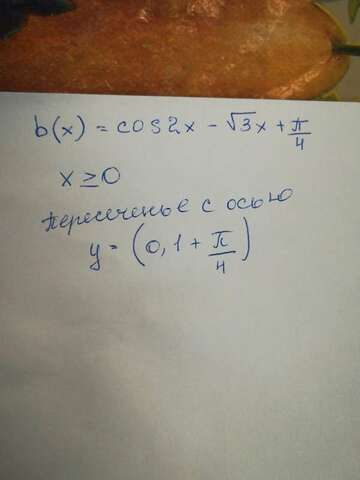 b(x) = cos2x - √3x + π/4
x ≥ 0
пересеченье с осью
y = (0, 1 + π/4)